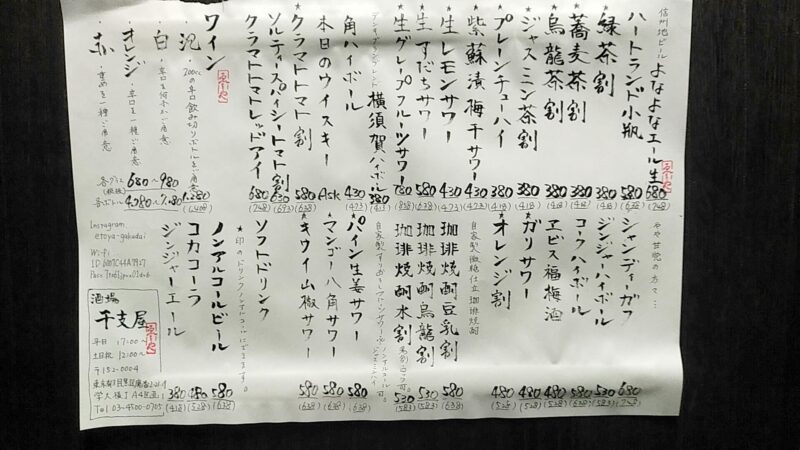 信州地ビール よなよなエール生 680 (748)
ハートランド小瓶 580 (638)
★緑茶割 380 (418)
★蕎麦茶割 380 (418)
★烏龍茶割 380 (418)
★ジャスミン茶割 380 (418)
プレーンチューハイ 380 (418)
紫蘇漬梅干サワー 430 (473)
★生レモンサワー 430 (473)
★生すだちサワー 580 (638)
★生グレープフルーツサワー 780 (858)
横須賀ハイボール 580
角ハイボール 430 (473)
本日のウイスキー Ask
クラマトトマト割 580 (638)
★ソルティースパイシートマト割 630 (693)
クラマトトマトレッドアイ 680 (748)
ワイン
泡
・200ccの辛口飲み切りボトルをご用意 1.280 (1.408)
白
オレンジ
・辛口を一種ご用意
赤
・重めを一種ご用意
各グラス (税抜) 680〜980
各ボトル
やや甘党の方々…
シャンディーガフ 680 (748)
ジンジャーハイボール 530 (583)
コークハイボール 580 (638)
ヱビス福梅酒 480 (528)
★ガリサワー 480 (528)
★オレンジ割 480 (528)
自家製微糖仕立珈琲焼酎
珈琲焼酎豆乳割 580 (638)
珈琲焼酎烏龍割 530 (583)
珈琲焼酎水割 530 (583)
★パイン生姜サワー 580 (638)
★マンゴー八角サワー 580 (638)
★キウイ山椒サワー 580 (638)
ソフトドリンク
★印のドリンクノンアルコールにできます。
ノンアルコールビール 580 (638)
コカコーラ 480 (528)
ジンジャーエール 380 (418)
Instagram
etoya-gakudai
Wi-Fi
酒場
干支屋
平日 17:00〜
土日祝 12:00〜
〒152-0004
Tel 03-4500-0705